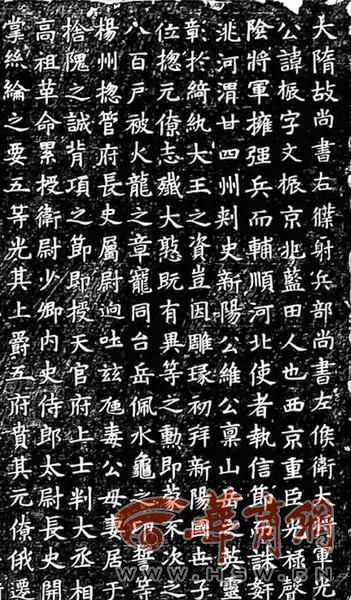 大隋故尚書右僕射兵部尚書左候衛大將軍光
公諱振字文振京兆藍田人也西京重臣光祿聲
陰將軍擁强兵而輔順河北使者執信節而誅姧
洮河渭廿四州刾史新陽公維公稟山英靈
彰於綺紈大王之資豈因雕琢初拜新陽國世子
位揔元僚志殲大憝既有異等之勳即蒙不次之
八百戶被火龍之章寵同台岳佩水龜印誓等
楊州揔管府長史屬尉逈吐玆虺毒公母妻居于
拾隗之誠背項之節即授天官府上士判大丞相
高祖革命累授衛尉少卿內史侍郎太尉長史開
掌絲綸之要五等光其上爵五府賁其元僚俄遷
华商网
WWW.HSW.CN